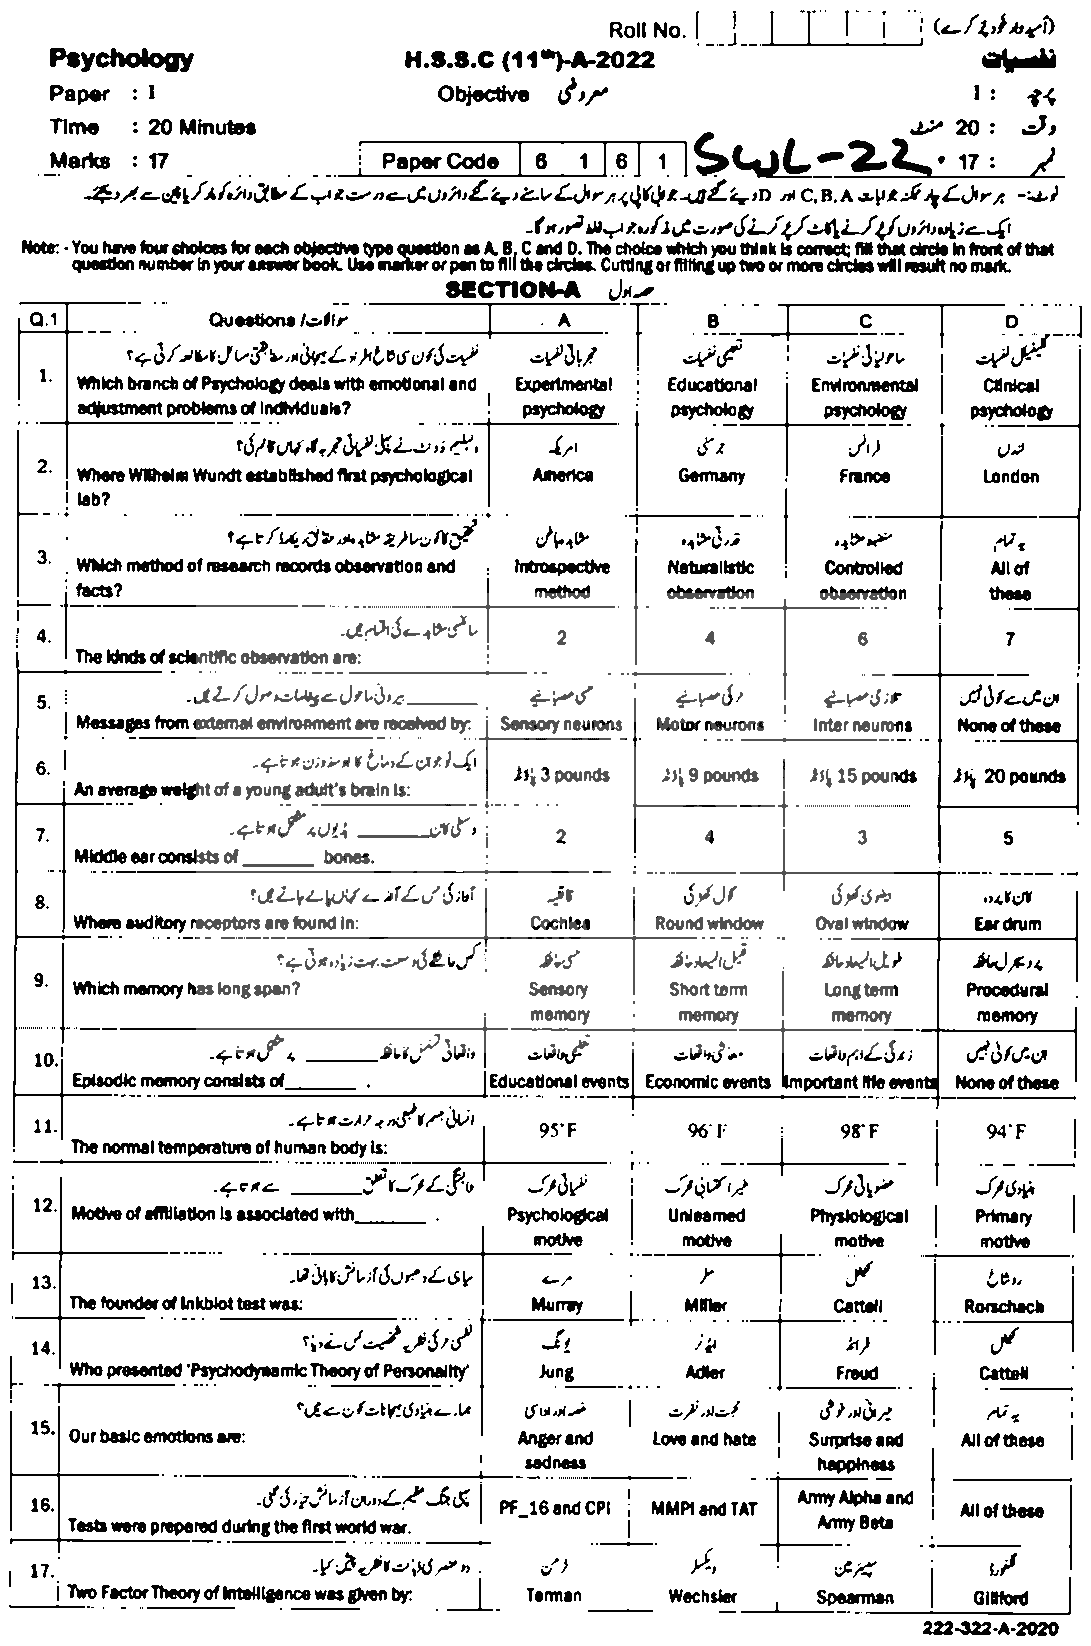 Roll No. (امیدوار خود پُر کرے)
Psychology H.S.S.C (11th)-A-2022 نفسیات
Paper : I Objective معروضی I : پرچہ
Time : 20 Minutes 20 منٹ : وقت
Marks : 17 Paper Code 6 1 6 1 SWL-22 17 : نمبر
نوٹ:- ہر سوال کے چار ممکنہ جوابات C, B, A اور D دیئے گئے ہیں۔ جوابی کاپی پر ہر سوال کے سامنے دیئے گئے دائروں میں سے درست جواب کے مطابق دائرہ کو مارکر یا پین سے بھر دیجئے۔
ایک سے زیادہ دائروں کو پُر کرنے یا کاٹ کر پُر کرنے کی صورت میں مذکورہ جواب غلط تصور ہو گا۔
Note: - You have four choices for each objective type question as A, B, C and D. The choice which you think is correct; fill that circle in front of that
question number in your answer book. Use marker or pen to fill the circles. Cutting or filling up two or more circles will result no mark.
SECTION-A حصہ اول
Q.1 Questions / سوالات A B C D
نفسیات کی کون سی شاخ افراد کے ہیجانی اور مطابقتی مسائل کا مطالعہ کرتی ہے؟ تجرباتی نفسیات تعلیمی نفسیات ماحولیاتی نفسیات کلینیکل نفسیات
1. Which branch of Psychology deals with emotional and Experimental Educational Environmental Clinical
adjustment problems of individuals? psychology psychology psychology psychology
ولہیلم وونٹ نے پہلی نفسیاتی تجربہ گاہ کہاں قائم کی؟ امریکہ جرمنی فرانس لندن
2. Where Wilhelm Wundt established first psychological America Germany France London
lab?
تحقیق کا کون سا طریقہ مشاہدہ اور حقائق ریکارڈ کرتا ہے؟ مشاہدہ باطن قدرتی مشاہدہ منضبط مشاہدہ یہ تمام
3. Which method of research records observation and Introspective Naturalistic Controlled All of
facts? method observation observation these
سائنسی مشاہدے کی اقسام ہیں۔
4. The kinds of scientific observation are: 2 4 6 7
_______ بیرونی ماحول سے پیغامات وصول کرتے ہیں۔ حسی عصبانیے حرکی عصبانیے تلازمی عصبانیے ان میں سے کوئی نہیں
5. Messages from external environment are received by: Sensory neurons Motor neurons Inter neurons None of these
ایک نوجوان کے دماغ کا اوسط وزن ہوتا ہے۔
6. An average weight of a young adult's brain is: 3 pounds پاؤنڈ 9 pounds پاؤنڈ 15 pounds پاؤنڈ 20 pounds پاؤنڈ
وسطی کان _______ ہڈیوں پر مشتمل ہوتا ہے۔
7. Middle ear consists of _______ bones. 2 4 3 5
آواز کی حس کے آخذے کہاں پائے جاتے ہیں؟ قوقعیہ گول کھڑکی بیضوی کھڑکی کان کا پردہ
8. Where auditory receptors are found in: Cochlea Round window Oval window Ear drum
کس حافظے کی وسعت بہت زیادہ ہوتی ہے؟ حسی حافظہ قلیل المیعاد حافظہ طویل المیعاد حافظہ پروسیجرل حافظہ
9. Which memory has long span? Sensory Short term Long term Procedural
memory memory memory memory
واقعاتی حافظہ _______ پر مشتمل ہوتا ہے۔ تعلیمی واقعات معاشی واقعات زندگی کے اہم واقعات ان میں کوئی نہیں
10. Episodic memory consists of _______ . Educational events Economic events Important life events None of these
انسانی جسم کا طبعی درجہ حرارت ہوتا ہے۔
11. The normal temperature of human body is: 95°F 96°F 98°F 94°F
وابستگی کے محرک کا تعلق _______ سے ہوتا ہے۔ نفسیاتی محرک غیر اکتسابی محرک عضویاتی محرک بنیادی محرک
12. Motive of affiliation is associated with _______ . Psychological Unlearned Physiological Primary
motive motive motive motive
سیاہی کے دھبوں کی آزمائش کا بانی تھا۔ مرے ملر کیٹل روشاخ
13. The founder of Inkblot test was: Murray Miller Cattell Rorschach
نفسی حرکی نظریہ شخصیت کس نے دیا؟ یونگ ایڈلر فرائڈ کیٹل
14. Who presented 'Psychodynamic Theory of Personality' Jung Adler Freud Cattell
ہمارے بنیادی ہیجانات کون سے ہیں؟ غصہ اور اداسی محبت اور نفرت حیرانی اور خوشی یہ تمام
15. Our basic emotions are: Anger and Love and hate Surprise and All of these
sadness happiness
پہلی جنگ عظیم کے دوران آزمائش تیار کی گئی۔
16. Tests were prepared during the first world war. PF_16 and CPI MMPI and TAT Army Alpha and All of these
Army Beta
دو عنصری ذہانت کا نظریہ پیش کیا۔ ٹرمن ویکسلر سپیئرمین گلفورڈ
17. Two Factor Theory of Intelligence was given by: Terman Wechsler Spearman Gillford
222-322-A-2020